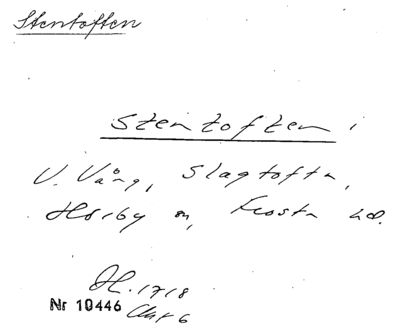 Stentoften
Stentoften i
V. Vång, Slagtofta,
Hörby sn, Frosta hd.
H. 1718
Nr 10446 Akt 6